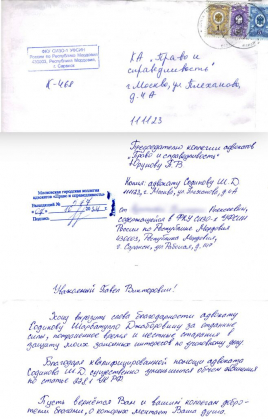 ФКУ СИЗО-1 УФСИН
России по Республике Мордовия
430003, Республика Мордовия,
г. Саранск
К-468
КА "Право и
справедливость"
г. Москва, ул. Плеханова,
д. 4А
111123
Председателю коллегии адвокатов
"Право и справедливость"
П.В
Копия адвокату Содикову Ш.Д
111123, г. Москва, ул. Плеханова, д. 4А
Московская городская коллегия
адвокатов «Право и справедливость»
Входящий №
Подпись
от Алексеевич,
содержащегося в ФКУ СИЗО-1 УФСИН
России по Республике Мордовия
430003, Республика Мордовия,
г. Саранск, ул. Рабочая, д.
Уважаемый Павел Викторович!
Хочу выразить свою благодарность адвокату
Содикову Шарбатулло Джаборовичу за отданные
силы, потраченное время и честные старания в
защиту моих законных интересов по уголовному делу.
Благодаря квалифицированной помощи адвоката
Содикова Ш.Д. существенно уменьшился объем обвинения
по статье 228.1 УК РФ.
Пусть вернётся Вам и вашим коллегам добро-
той, о которой мечтает Ваша душа.